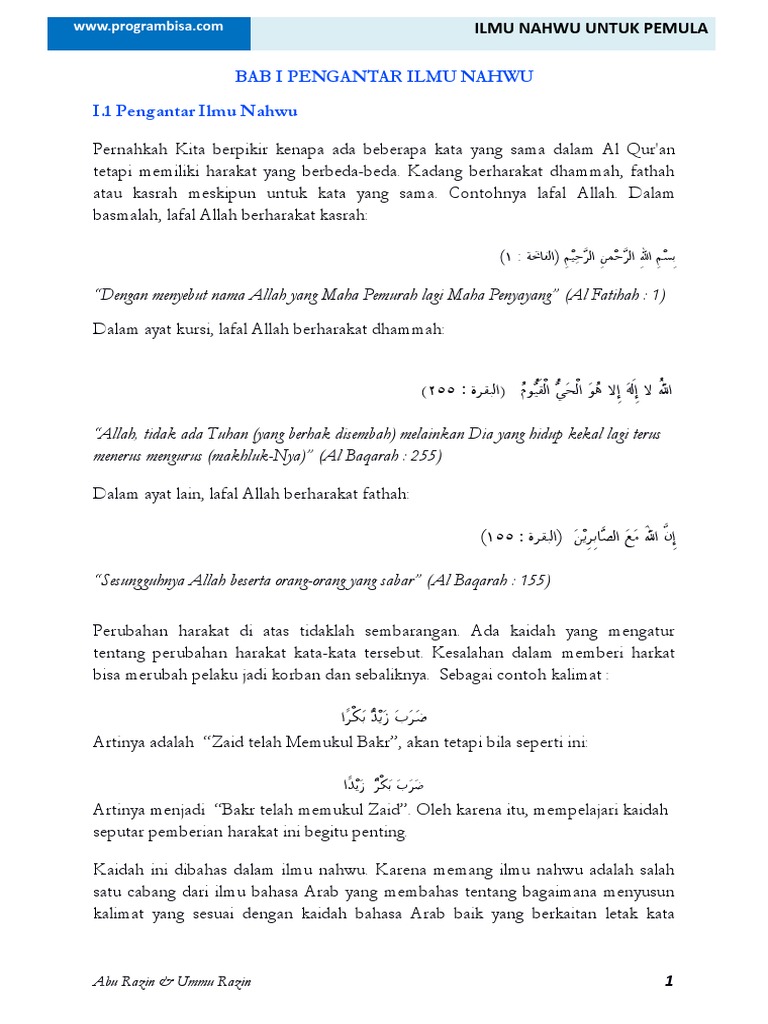 www.programbisa.com
ILMU NAHWU UNTUK PEMULA
BAB I PENGANTAR ILMU NAHWU
I.1 Pengantar Ilmu Nahwu
Pernahkah Kita berpikir kenapa ada beberapa kata yang sama dalam Al Qur'an
tetapi memiliki harakat yang berbeda-beda. Kadang berharakat dhammah, fathah
atau kasrah meskipun untuk kata yang sama. Contohnya lafal Allah. Dalam
basmalah, lafal Allah berharakat kasrah:
بِسْمِ اللهِ الرَّحْمنِ الرَّحِيْمِ (الفاتحة : ١)
“Dengan menyebut nama Allah yang Maha Pemurah lagi Maha Penyayang” (Al Fatihah : 1)
Dalam ayat kursi, lafal Allah berharakat dhammah:
اللهُ لا إِلَهَ إِلا هُوَ الْحَيُّ الْقَيُّومُ (البقرة : ٢٥٥)
“Allah, tidak ada Tuhan (yang berhak disembah) melainkan Dia yang hidup kekal lagi terus
menerus mengurus (makhluk-Nya)” (Al Baqarah : 255)
Dalam ayat lain, lafal Allah berharakat fathah:
إِنَّ اللهَ مَعَ الصَّابِرِيْنَ (البقرة : ١٥٥)
“Sesungguhnya Allah beserta orang-orang yang sabar” (Al Baqarah : 155)
Perubahan harakat di atas tidaklah sembarangan. Ada kaidah yang mengatur
tentang perubahan harakat kata-kata tersebut. Kesalahan dalam memberi harkat
bisa merubah pelaku jadi korban dan sebaliknya. Sebagai contoh kalimat :
ضَرَبَ زَيْدٌ بَكْرًا
Artinya adalah “Zaid telah Memukul Bakr”, akan tetapi bila seperti ini:
ضَرَبَ بَكْرٌ زَيْدًا
Artinya menjadi “Bakr telah memukul Zaid”. Oleh karena itu, mempelajari kaidah
seputar pemberian harakat ini begitu penting.
Kaidah ini dibahas dalam ilmu nahwu. Karena memang ilmu nahwu adalah salah
satu cabang dari ilmu bahasa Arab yang membahas tentang bagaimana menyusun
kalimat yang sesuai dengan kaidah bahasa Arab baik yang berkaitan letak kata
Abu Razin & Ummu Razin
1